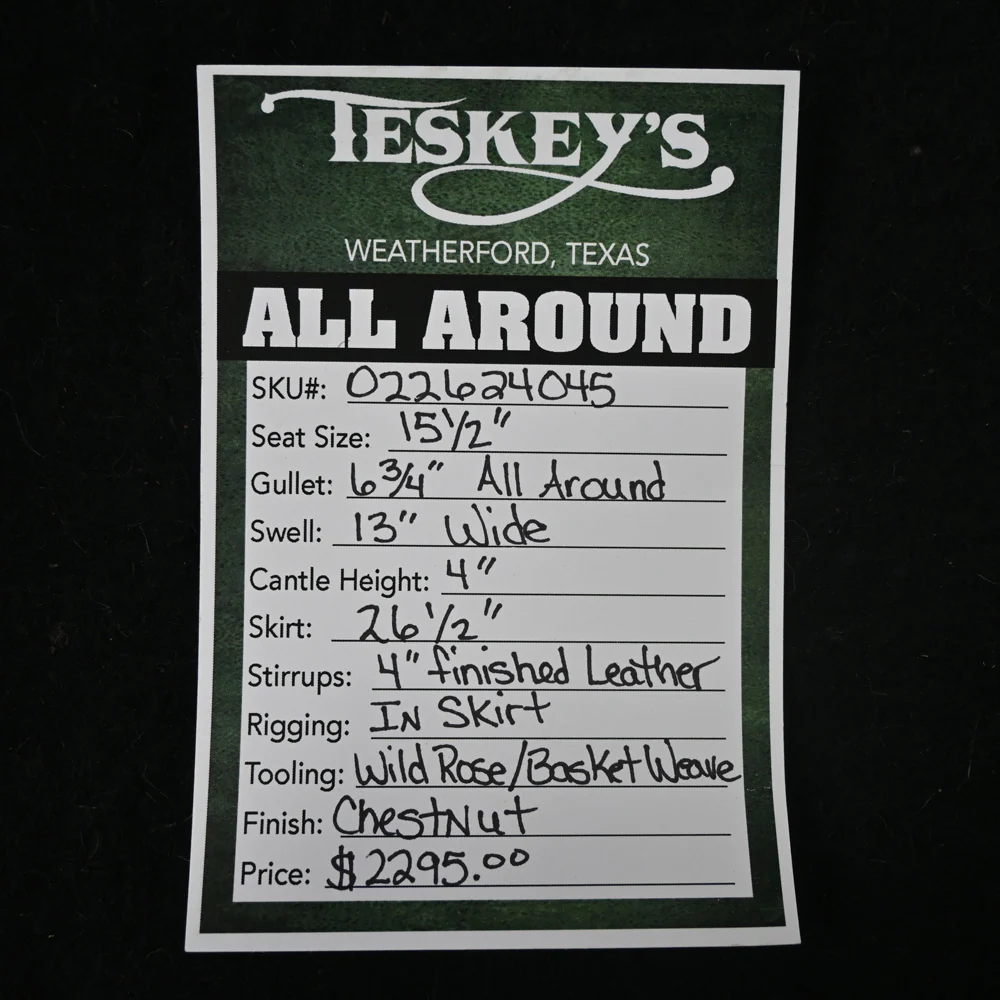 TESKEY'S
WEATHERFORD, TEXAS
ALL AROUND
SKU#: 022624045
Seat Size: 15 1/2"
Gullet: 6 3/4" All Around
Swell: 13" Wide
Cantle Height: 4"
Skirt: 26 1/2"
Stirrups: 4" finished Leather
Rigging: IN Skirt
Tooling: Wild Rose/Basket Weave
Finish: ChestNut
Price: $2295.00